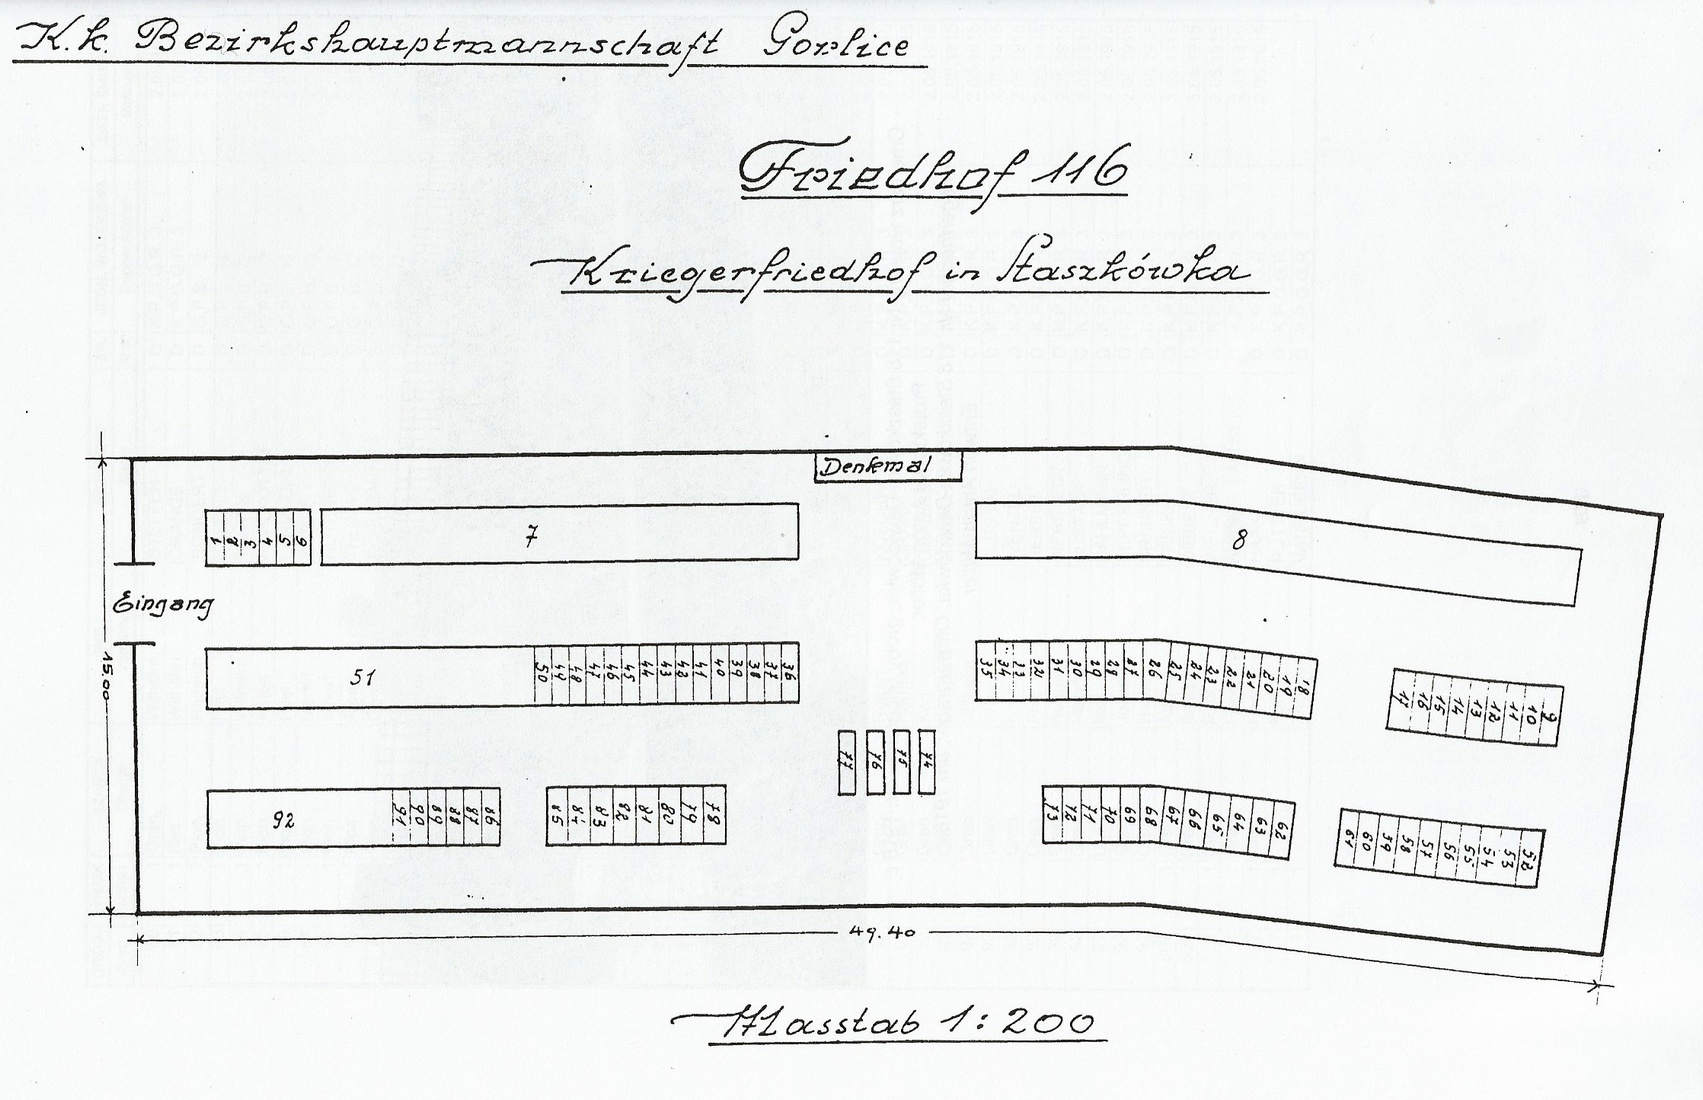 K. k. Bezirkshauptmannschaft Gorlice
Friedhof 116
Kriegerfriedhof in Staszkówka
Denkmal
1 2 3 4 5 6
7
8
Eingang
15.00
51
50 49 48 47 46 45 44 43 42 41 40 39 38 37 36
35 34 33 32 31 30 29 28 27 26 25 24 23 22 21 20 19 18
17 16 15 14 13 12 11 10 9
77 76 75 74
92
91 90 89 88 87 86
85 84 83 82 81 80 79 78
73 72 71 70 69 68 67 66 65 64 63 62
61 60 59 58 57 56 55 54 53 52
49.40
Masstab 1:200